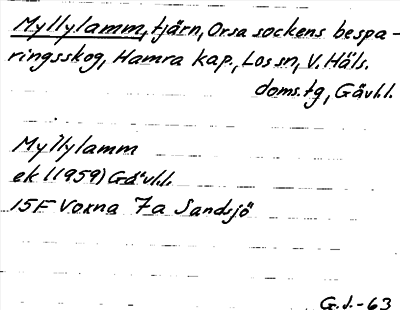 Myllylamm, tjärn, Orsa sockens bespa-
ringsskog, Hamra kap., Los sn, V. Häls.
doms.tg, Gävl.l.
Myllylamm
ek l (1959) Gävl.l.
15F Voxna 7a Sandsjö
G.J.-63